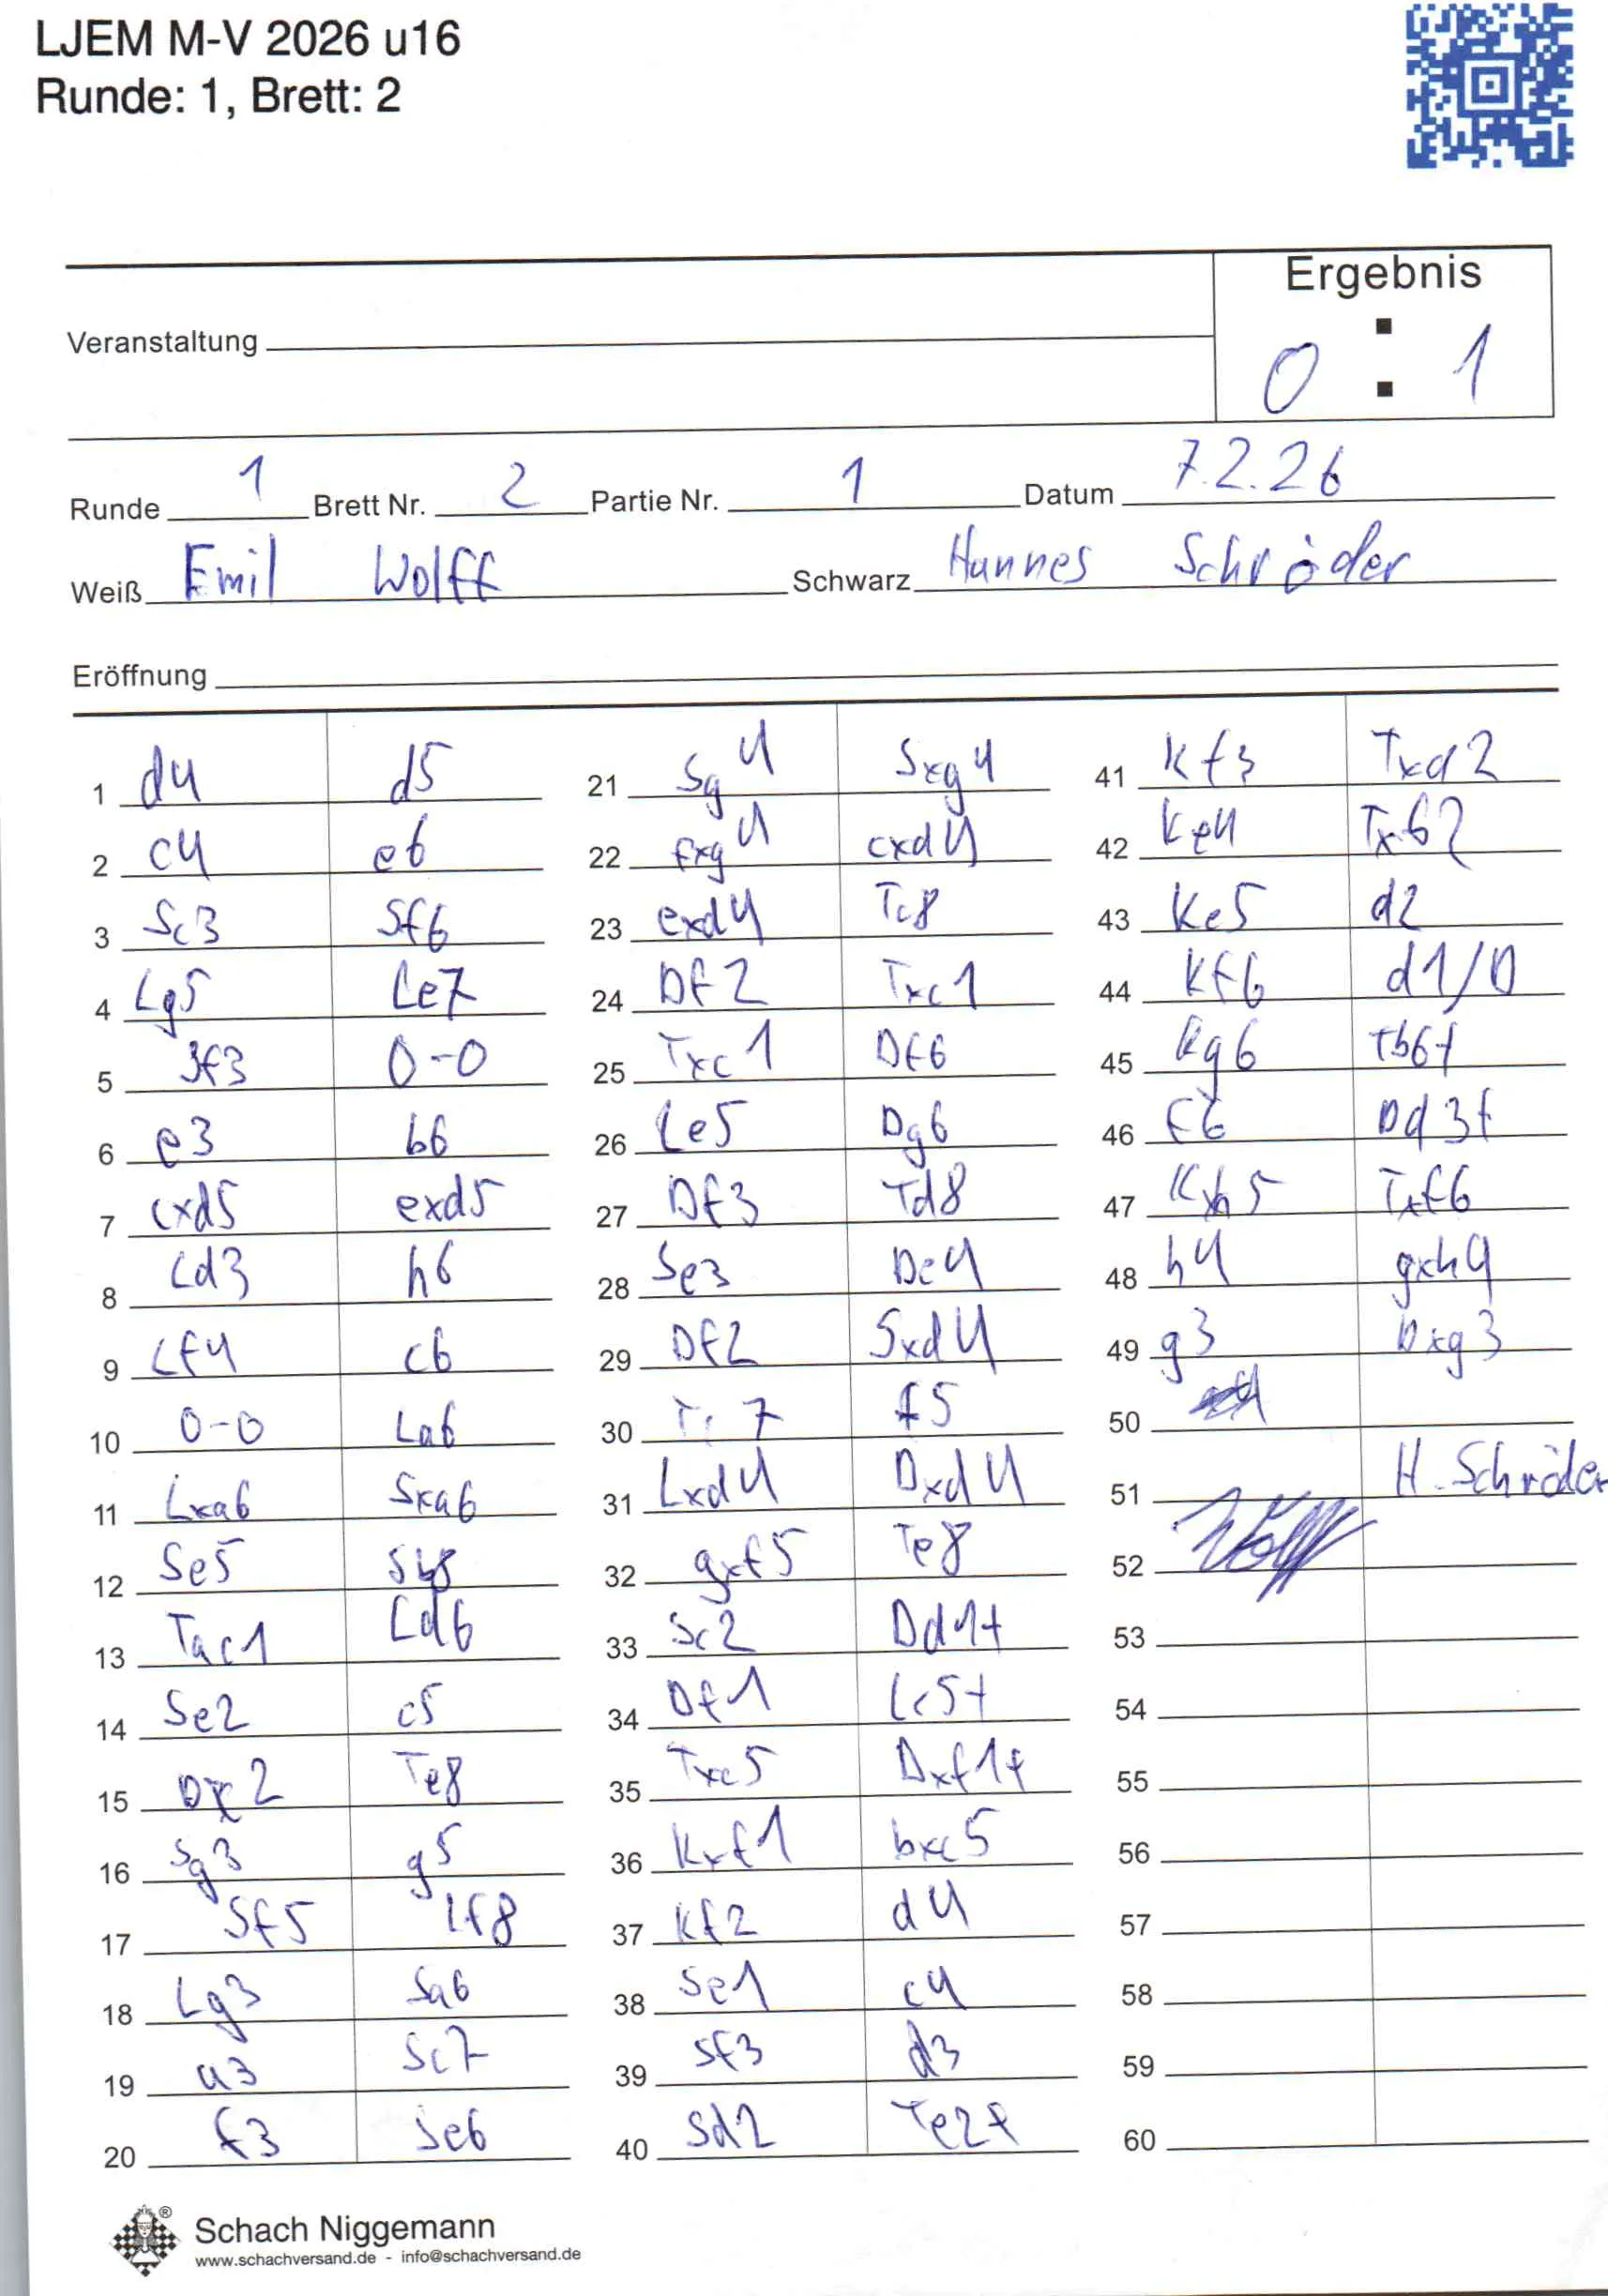 LJEM M-V 2026 u16
Runde: 1, Brett: 2
Ergebnis
Veranstaltung
0 : 1
Runde 1 Brett Nr. 2 Partie Nr. 1 Datum 7.2.26
Weiß Emil Wolff Schwarz Hannes Schröder
Eröffnung
1 d4 d5
2 c4 e6
3 Sc3 Sf6
4 Lg5 Le7
5 Sf3 0-0
6 e3 b6
7 cxd5 exd5
8 Ld3 h6
9 Lf4 c6
10 0-0 La6
11 Lxa6 Sxa6
12 Se5 Sb8
13 Tac1 Ld6
14 Se2 c5
15 2 Te8
16 Sg3 g5
17 Sf5 Lf8
18 Lg3 Sa6
19 a3 Sc7
20 f3 Se6
21 Sg4 Sxg4
22 fxg4 cxd4
23 exd4 Tc8
24 Df2 Txc1
25 Txc1 Df6
26 Le5 Dg6
27 Df3 Td8
28 Se3 De4
29 Df2 Sxd4
30 Tc7 f5
31 Lxd4 Dxd4
32 gxf5 Te8
33 Sc2 Dd1+
34 Df1 Lc5+
35 Txc5 Dxf1+
36 Kxf1 bxc5
37 Kf2 d4
38 Se1 c4
39 Sf3 d3
40 Sd2 Te2+
41 Kf3 Txd2
42 Ke4 Txb2
43 Ke5 d2
44 Kf6 d1/D
45 Kg6 Tb6+
46 f6 Dd3+
47 Kh5 Txf6
48 h4 gxh4
49 g3 Dxg3
50
51 H. Schröder
52 Wolff
53
54
55
56
57
58
59
60
Schach Niggemann ®
www.schachversand.de - info@schachversand.de